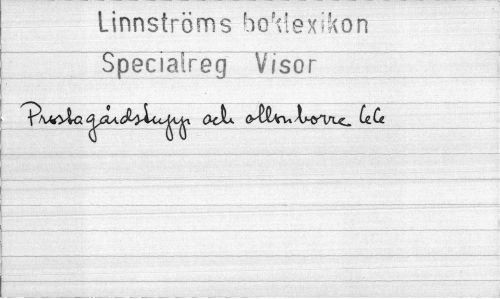 Linnströms boklexikon
Specialreg Visor
Prostagårdstupp och ollonborre